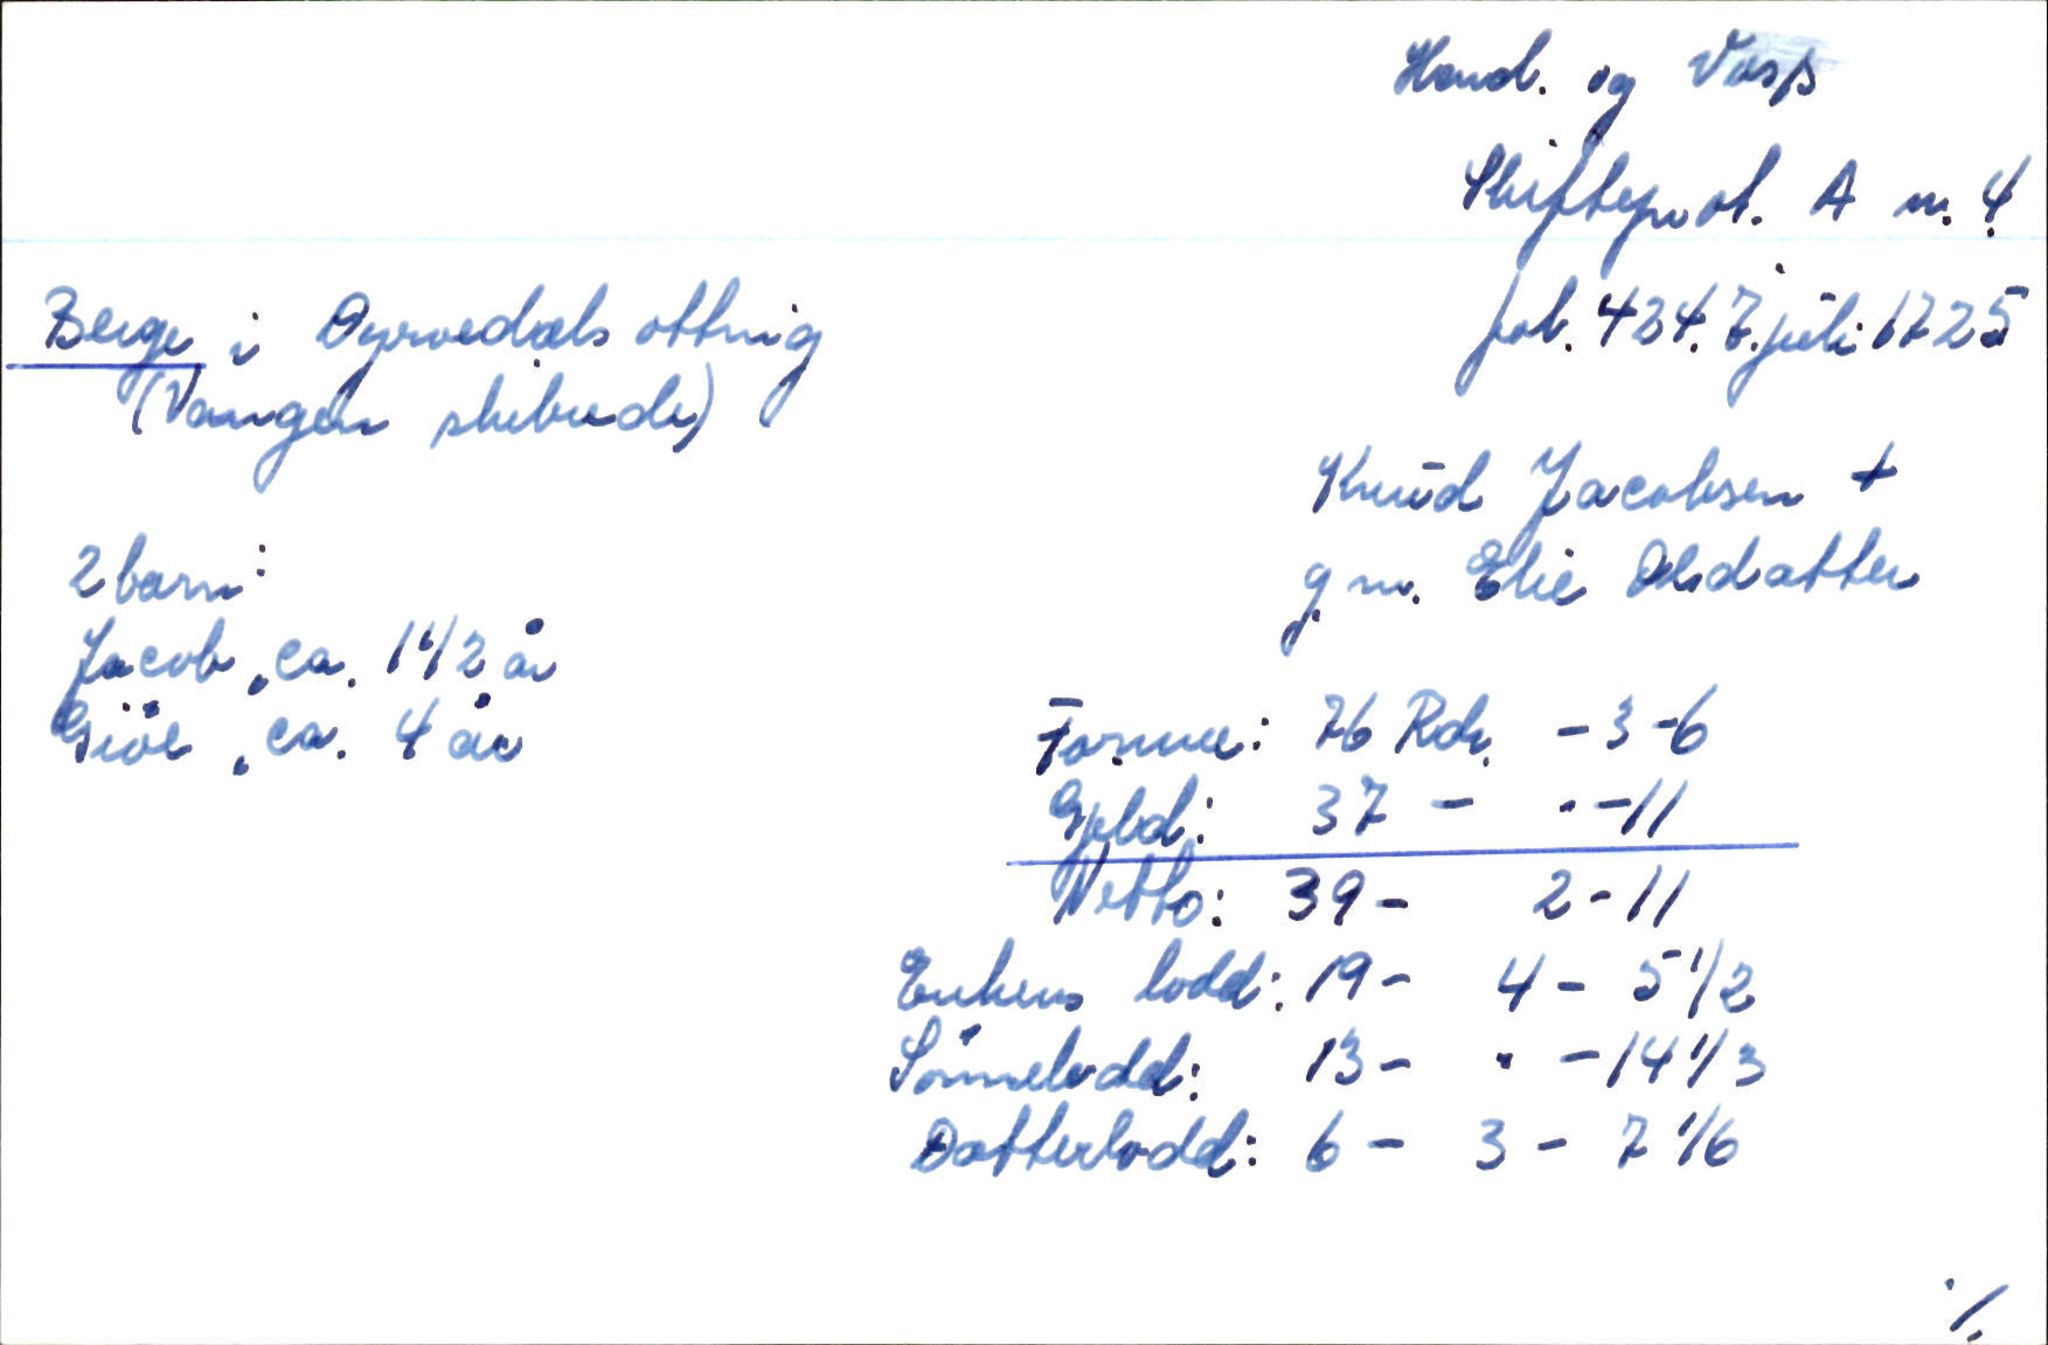 Hard. og Voss
Skifteprot. A nr. 4
fol. 424. 7. juli 1725
Berge i Dyrvedals ottnig
(Vangen skibrede)
Knud Jacobsen +
g. m. Elie Olsdatter
2 barn:
Jacob, ca. 1 1/2 år
Giöe, ca. 4 år
Formue: 76 Rdr. - 3 - 6
Gjeld: 37 - · - 11
Netto: 39 - 2 - 11
Enkens lodd: 19 - 4 - 5 1/2
Sönnelodd: 13 - · - 14 1/3
Datterlodd: 6 - 3 - 7 1/6
·/.